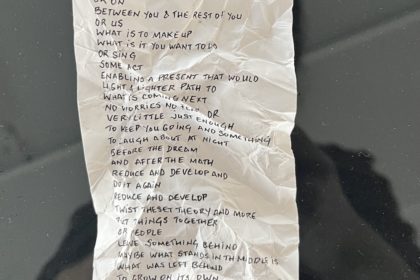 OR ON
BETWEEN YOU & THE REST OF YOU
OR US
WHAT IS TO MAKE UP
WHAT IS IT YOU WANT TO DO
OR SING
SOME ACT
ENABLING A PRESENT THAT WOULD
LIGHT A LIGHTER PATH TO
WHAT IS COMING NEXT
NO WORRIES NO OR
VERY LITTLE JUST ENOUGH
TO KEEP YOU GOING AND SOMETHING
TO LAUGH ABOUT AT NIGHT
BEFORE THE DREAM
AND AFTER THE MATH
REDUCE AND DEVELOP AND
DO IT AGAIN
REDUCE AND DEVELOP
TWIST THE SET THEORY AND MORE
PUT THINGS TOGETHER
OR PEOPLE
LEAVE SOMETHING BEHIND
MAYBE WHAT STANDS IN THE MIDDLE IS
WHAT WAS LEFT BEHIND
TO GROW ON ITS OWN